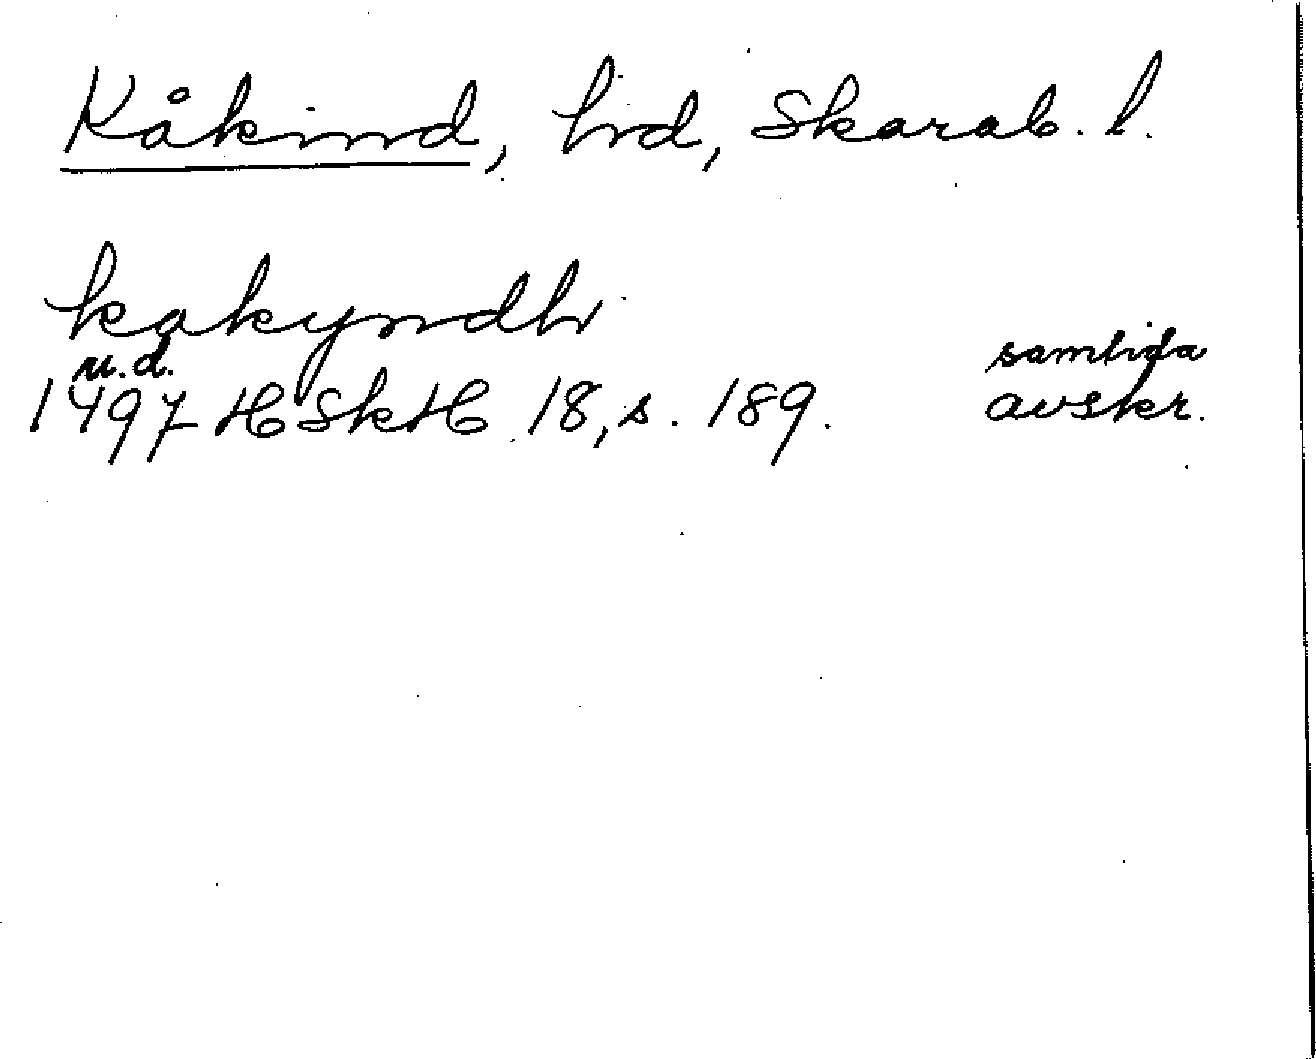 Kåkind, hd, Skarab. l.
kakyndh
u.d. samtida
1497 HSkH 18, s. 189. avskr.